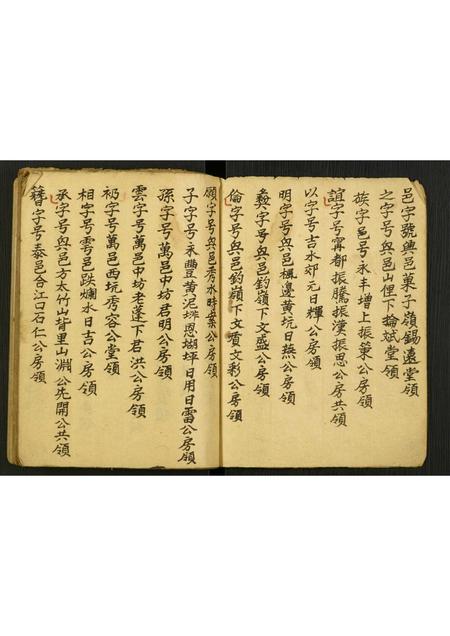 邑字號興邑菓子嶺錫遠堂領
之字号興邑山俚下掄斌堂領
族字邑号永丰增上振策公房領
誼字号甯都振騰振漢振思公房共領
以字号吉水郊元日輝公房領
明字号興邑楓邊黄坑日燕公房領
彝字号興邑釣嶺下文盛公房領
倫字号興邑釣嶺下文賢文彩公房領
願字号興邑秀水時榮公房領
子字号永豐黄泥垪恩塘坪日用日雷公房領
孫字号萬邑中坊君明公房領
雲字号萬邑中坊老蓬下君洪公房領
礽字号萬邑西坑秀容公堂領
相字号雩邑跌爛水日吉公房領
承字号興邑方太竹山背里山淵公先開公共領
簪字号泰邑合江口石仁公房領